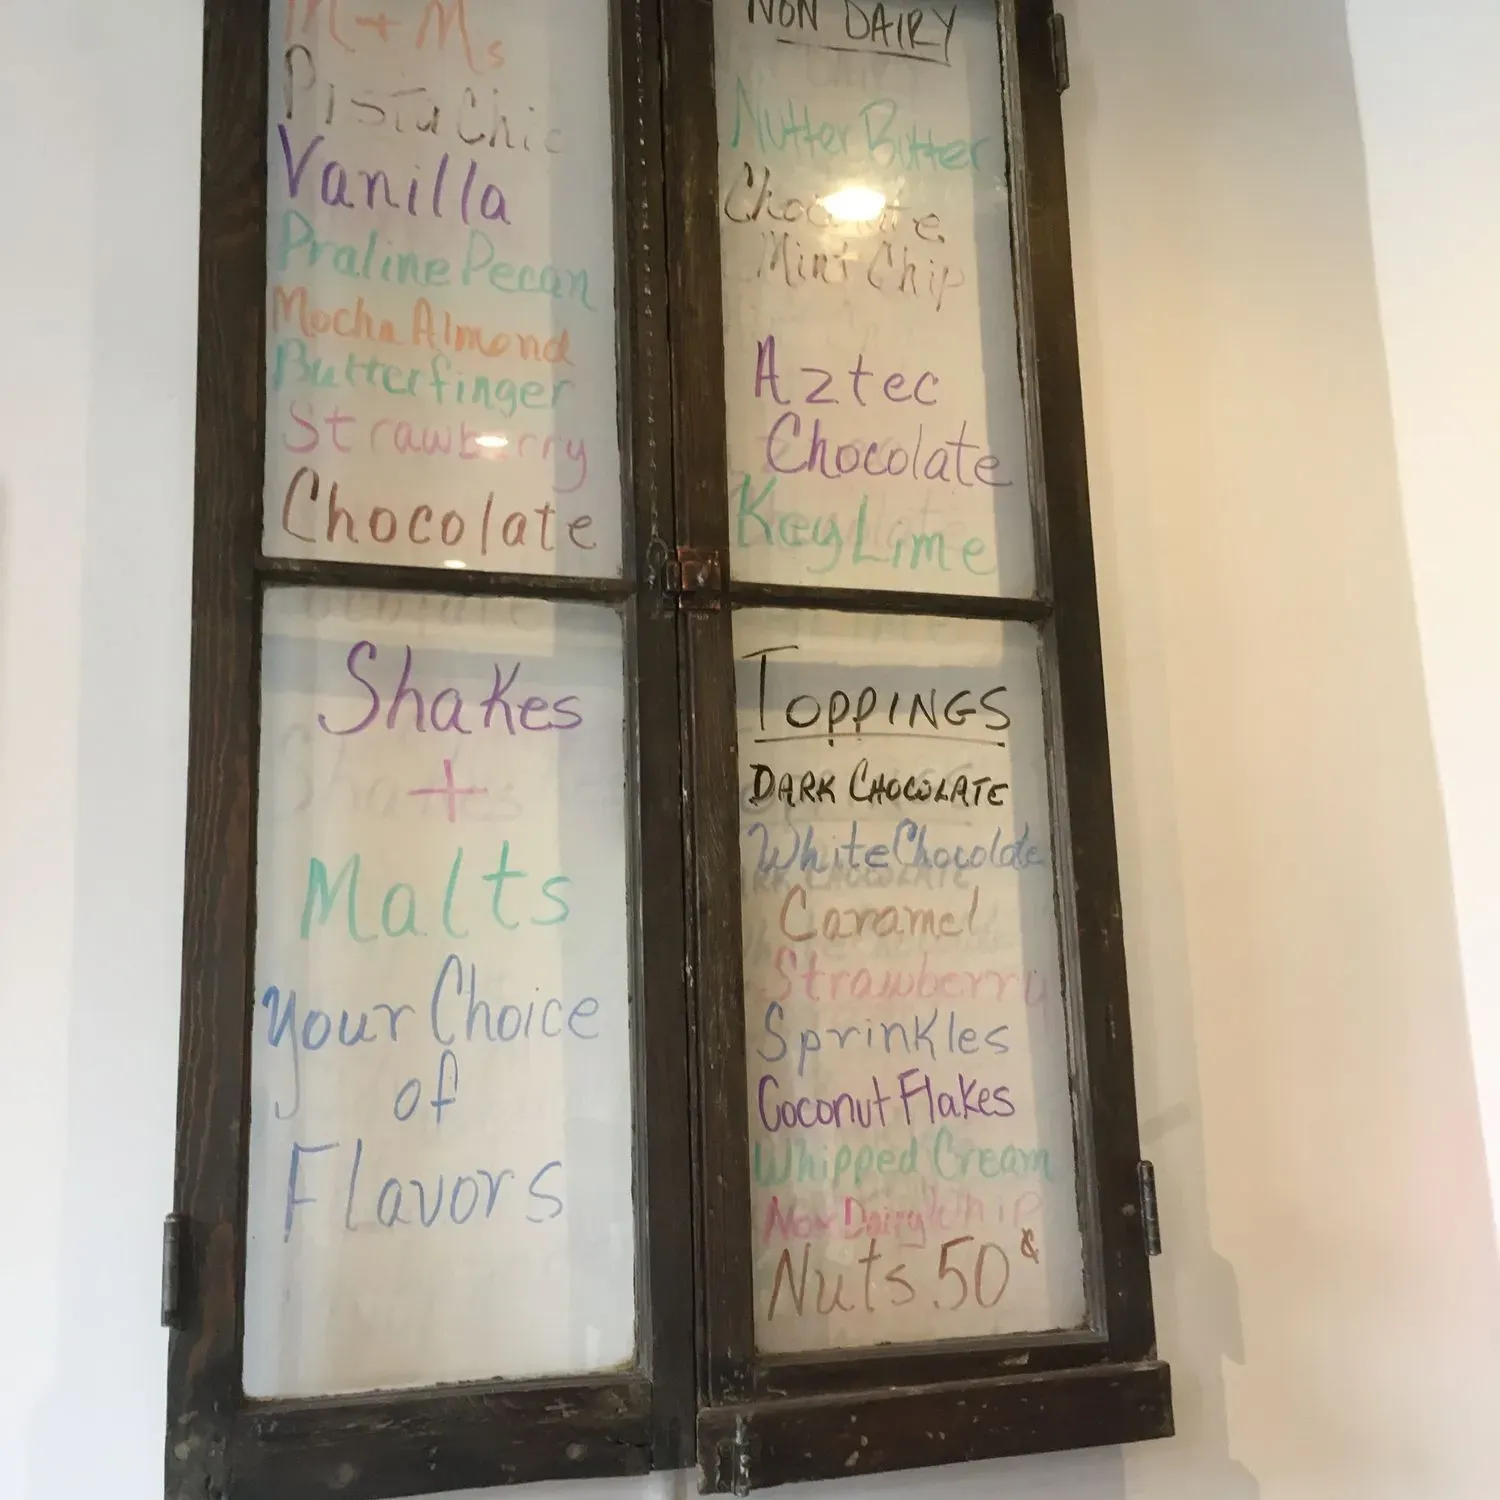 M + Ms
Pistachio
Vanilla
Praline Pecan
Mocha Almond
Butterfinger
Strawberry
Chocolate
Shakes
+
Malts
your Choice
of
Flavors
NON DAIRY
Nutter Butter
Chocolate
Mint Chip
Aztec
Chocolate
Key Lime
TOPPINGS
DARK CHOCOLATE
White Chocolate
Caramel
Strawberry
Sprinkles
Coconut Flakes
Whipped Cream
Non Dairy Whip
Nuts .50¢